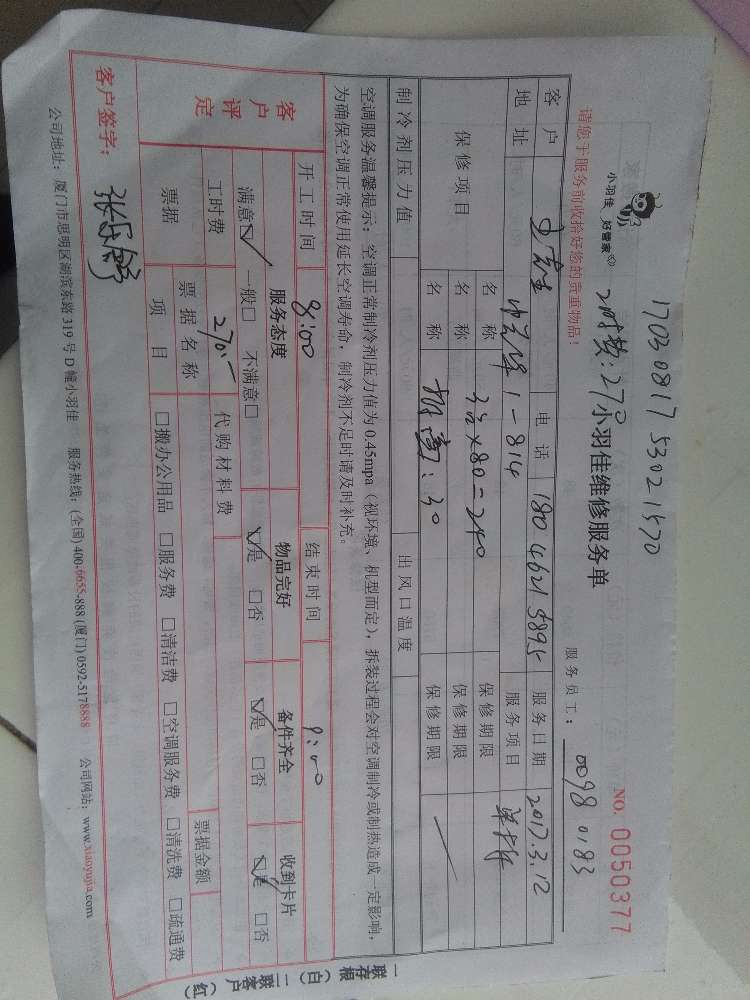 17030817 53021570
小羽佳 好管家
小羽佳维修服务单
NO. 0050377
请您于服务前收拾好您的贵重物品！
服务员工： 0098 0183
客户 电话 180 4621 5895 服务日期 2017.3.12
地址 1-814 服务项目
保修项目 名称 3台×80=240 保修期限
名称 保修期限
名称 ：30 保修期限
制冷剂压力值 出风口温度
空调服务温馨提示：空调正常制冷剂压力值为0.45mpa（视环境、机型而定），拆装过程会对空调制冷或制热造成一定影响，
为确保空调正常使用延长空调寿命，制冷剂不足时请及时补充。
开工时间 8:00 结束时间 9:00
客户评定 服务态度 物品完好 备件齐全 收到卡片
满意☑ 一般□ 不满意□ ☑是 □否 ☑是 □否 ☑是 □否
工时费 270.- 代购材料费
票据 票据名称 票据金额
项目 □搬办公用品 □服务费 □清洁费 □空调服务费 □清洗费 □疏通费
客户签字：
公司地址：厦门市思明区湖滨东路319号D幢小羽佳 服务热线：(全国) 400-6655-888 (厦门) 0592-5178888 公司网站：www.xiaoyujia.com
一联存根（白） 二联客户（红）